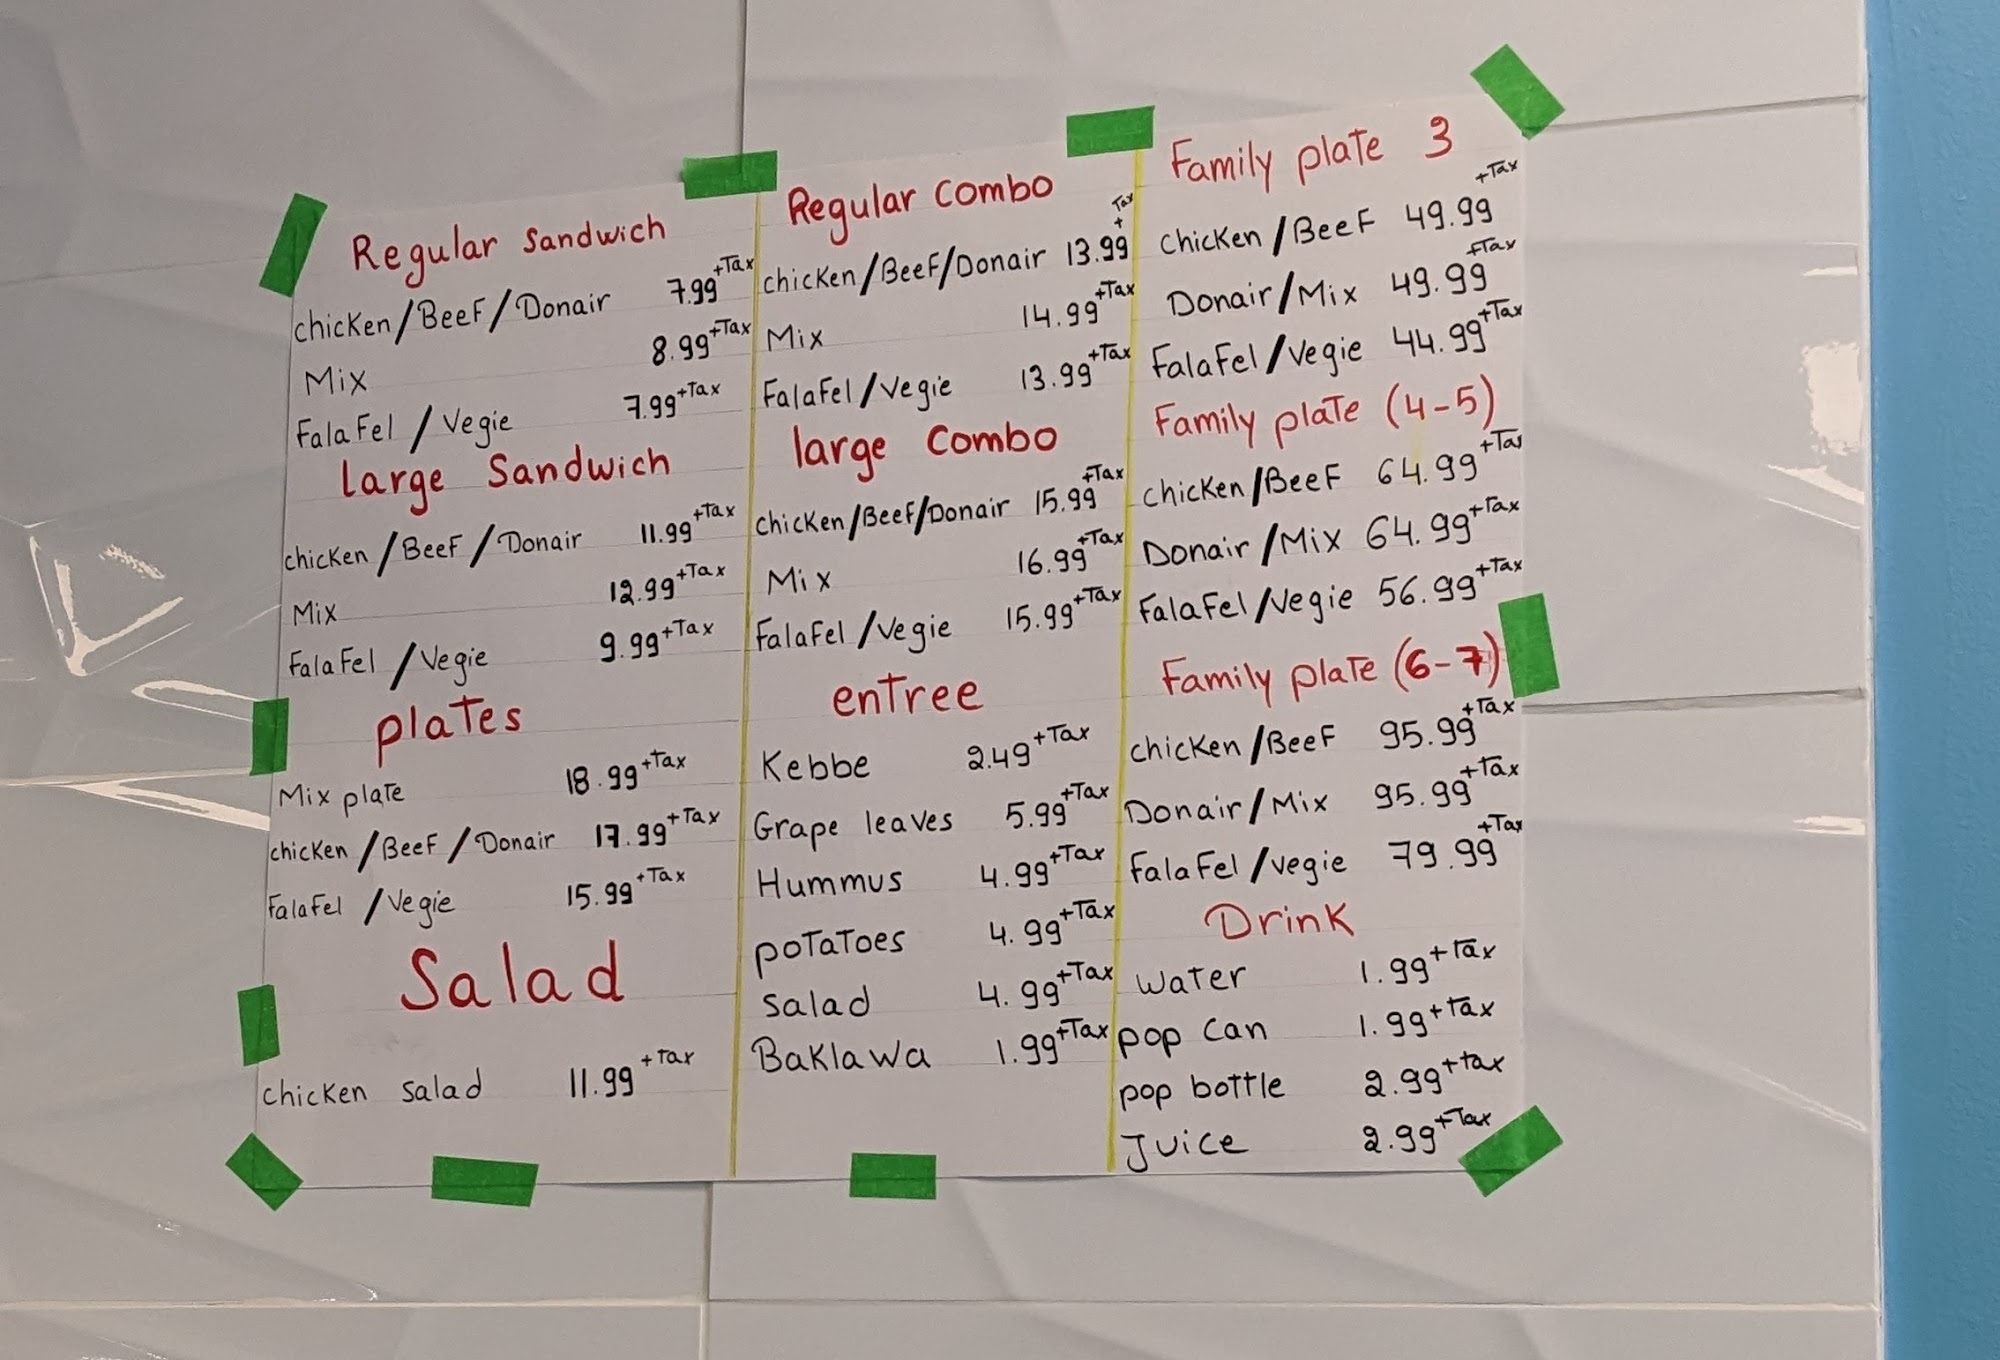 Regular Sandwich
chicken/BeeF/Donair 7.99+Tax
Mix 8.99+Tax
FalaFel/Vegie 7.99+Tax
large Sandwich
chicken/BeeF/Donair 11.99+Tax
Mix 12.99+Tax
FalaFel/Vegie 9.99+Tax
plates
Mix plate 18.99+Tax
chicken/BeeF/Donair 17.99+Tax
FalaFel/Vegie 15.99+Tax
Salad
chicken salad 11.99+Tax
Regular Combo
chicken/BeeF/Donair 13.99+Tax
Mix 14.99+Tax
FalaFel/Vegie 13.99+Tax
large Combo
chicken/Beef/Donair 15.99+Tax
Mix 16.99+Tax
FalaFel/Vegie 15.99+Tax
entree
Kebbe 2.49+Tax
Grape leaves 5.99+Tax
Hummus 4.99+Tax
potatoes 4.99+Tax
Salad 4.99+Tax
Baklawa 1.99+Tax
Family plate 3
chicken/BeeF 49.99+Tax
Donair/Mix 49.99+Tax
FalaFel/Vegie 44.99+Tax
Family plate (4-5)
chicken/BeeF 64.99+Tax
Donair/Mix 64.99+Tax
FalaFel/Vegie 56.99+Tax
Family plate (6-7)
chicken/BeeF 95.99+Tax
Donair/Mix 95.99+Tax
FalaFel/vegie 79.99+Tax
Drink
water 1.99+Tax
pop Can 1.99+Tax
pop bottle 2.99+tax
Juice 2.99+Tax